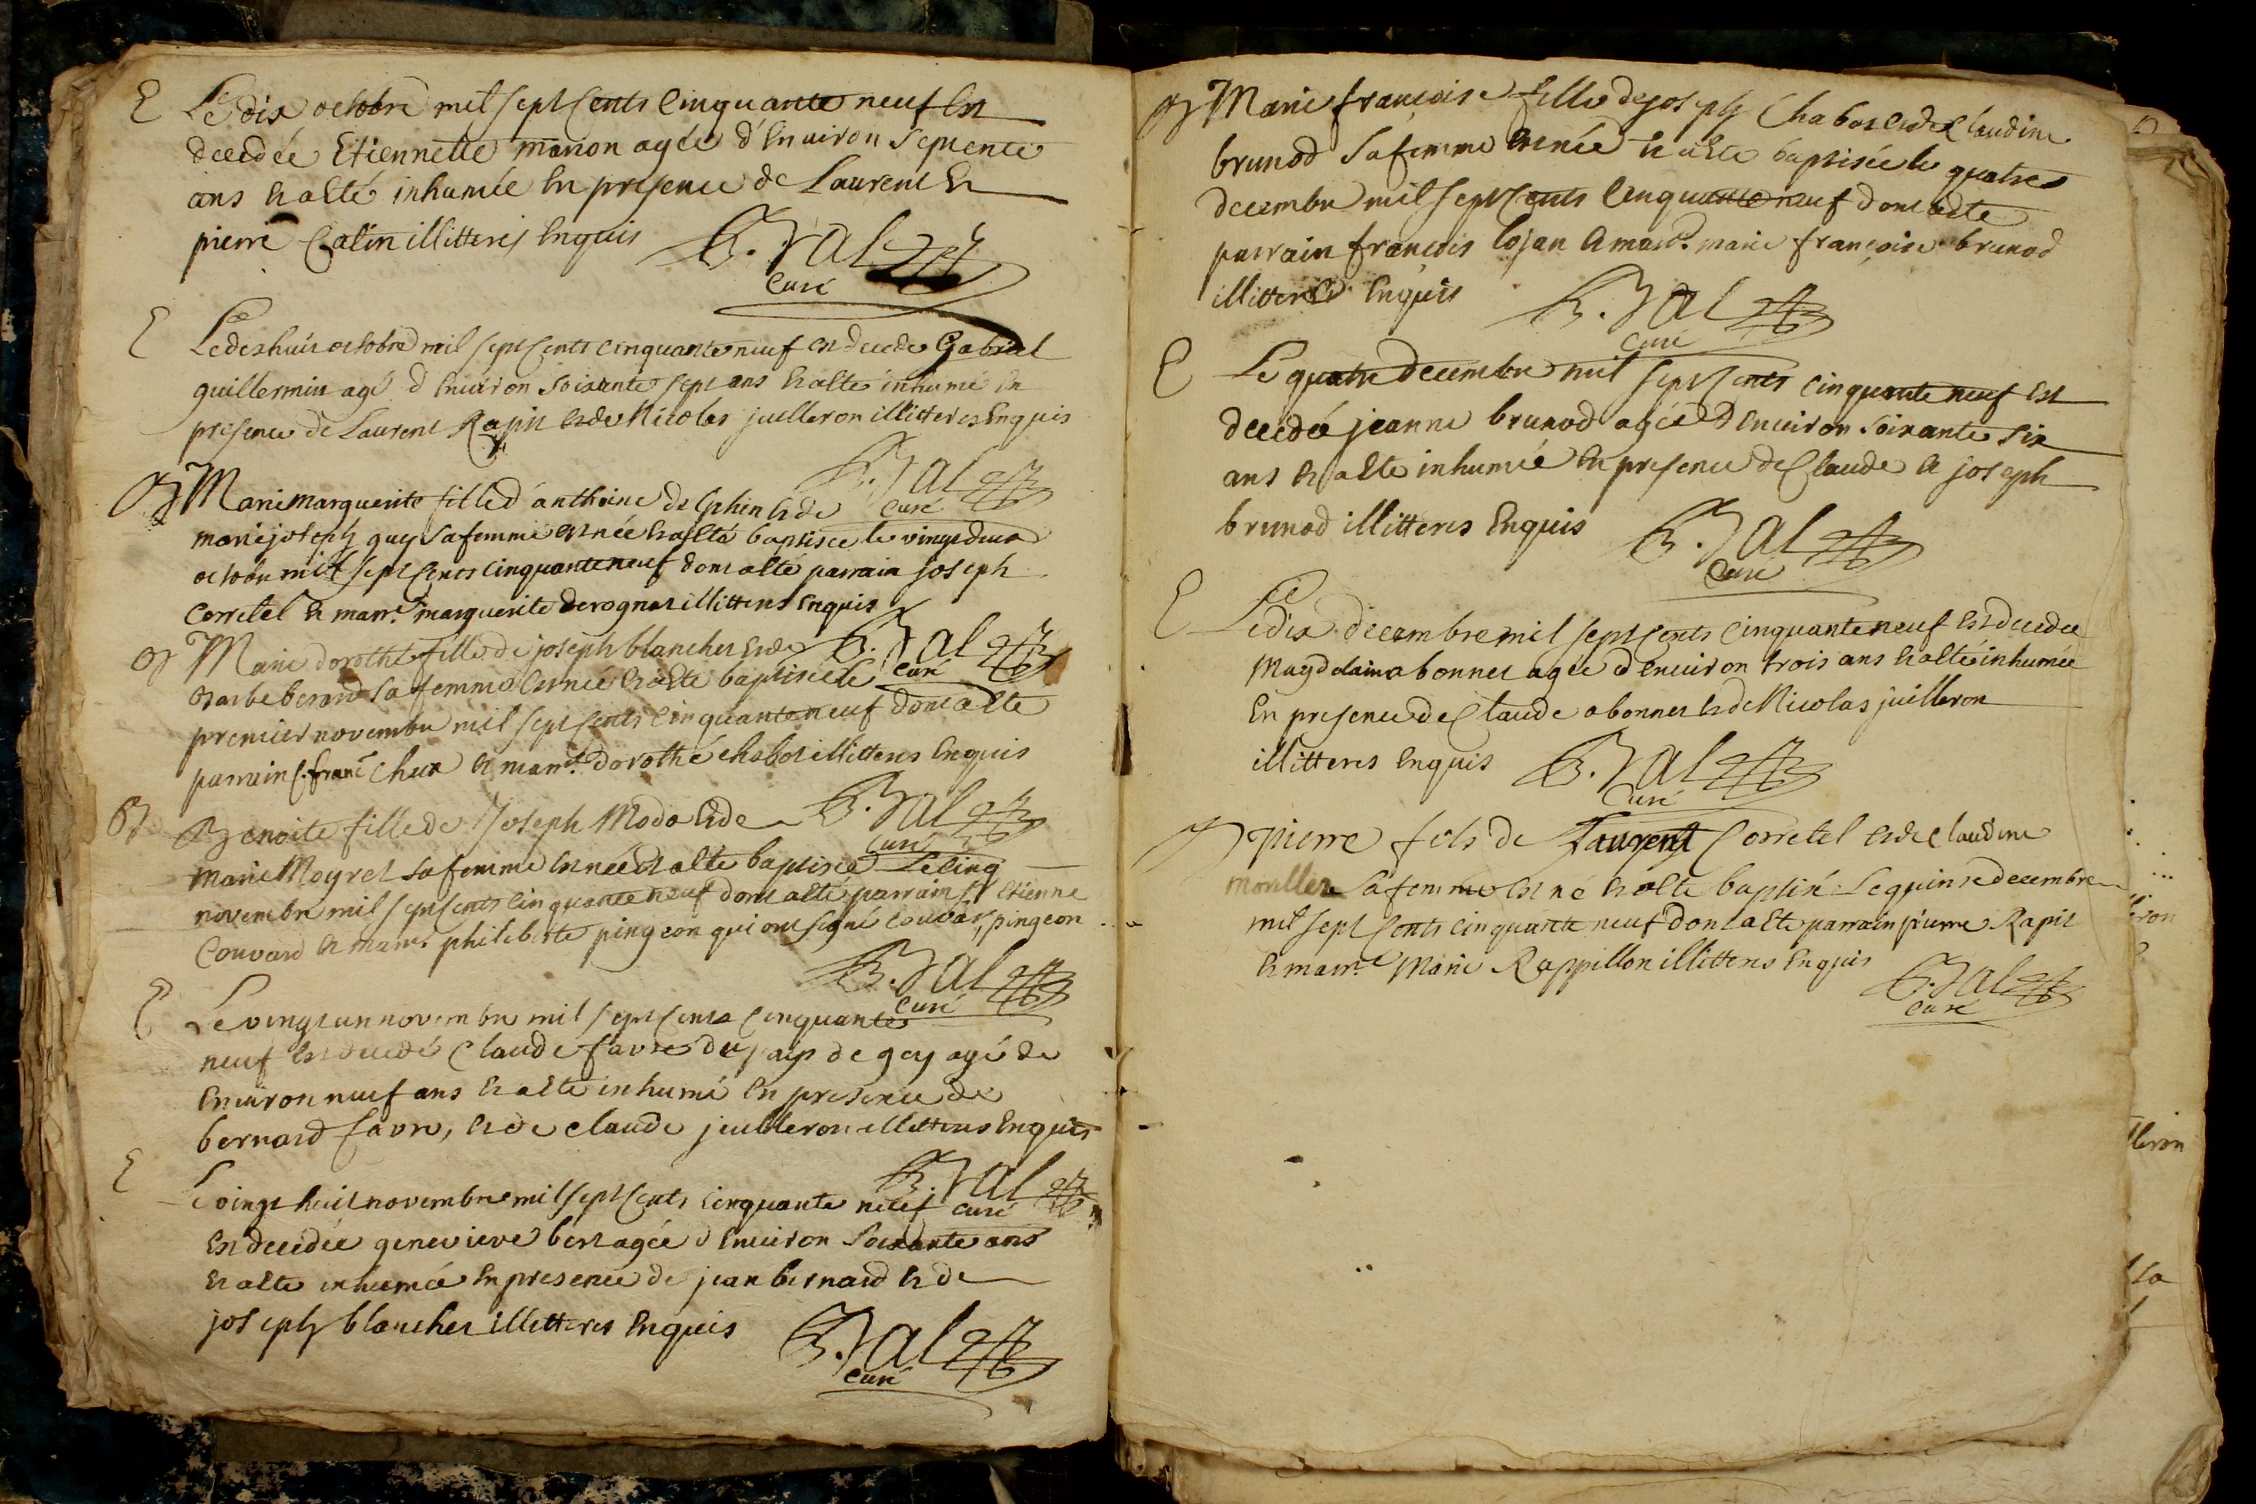 E Le dix octobre mil sept Cents Cinquante neuf Est
decedée Etiennette manon agée d'Environ Septente
ans Et a Eté inhumée En presence de Laurent Et
pierre Catin illitteres Enquis B. Val
Curé
E Le dexhuit octobre mil sept Cents cinquante neuf est decede Gabriel
guillermin agé d Environ Soixante sept ans Et a Ete inhumé En
presence de Laurent Rapit et de Nicolas juilleron illitteres Enquis
B. Val
Curé
B Marie Marguerite fille d'anthoine delphin Et de
marie joseph guy Sa femme est née Et a Eté baptisee le vingt deux
octobre mil sept Cents cinquante neuf dont a Eté parrain joseph
Corretel Et marr.e marguerite derognat illitteres Enquis
B. Val
Curé
B Marie dorothé fille de joseph blanchet Et de
Barbe berard Sa femme Est née Et a Ete baptisée le
premier novembre mil sept Cents Cinquante neuf dont a Ete
parrain franc Chea Et marr.e dorothé chabot illitteres Enquis
B. Val
Curé
B Benoite fille de Joseph Modo Et de
Marie Moyret Sa femme Est née Et a Eté baptisée Le Cinq
novembre mil sept Cents Cinquante neuf dont a Eté parrain Sr Etienne
Couvard Et marr.e philiberte pingeon qui ont signé Couvar, pingeon
B. Val
Curé
E Le vingt un novembre mil sept Cents Cinquante
neuf Est decedé Claude favre du pays de gey agé de
Environ neuf ans Et a Ete inhumé En presence de
bernard favre, Et de Claude juilleron illitteres Enquis
B. Val
Curé
E Le vingt huit novembre mil sept Cents Cinquante neuf
Est decedée genevieve bert agée d Environ Soixante ans
Et a Ete inhumée En presence de jean bernard Et de
joseph blanchet illitteres Enquis B. Val
Curé
B Marie françoise fille de joseph Chabot et de Claudine
brunod Sa femme Est née Et a Ete baptisée le quatre
decembre mil sept Cents Cinquante neuf dont a Ete
parrain françois Cojan Et marr.e marie françoise brunod
illitteres Enquis B. Val
Curé
E Le quatre decembre mil sept Cents cinquante neuf Est
decedé jeanne brunod agée d Environ Soixante Six
ans Et a Ete inhumée En presence de Claude Et joseph
brunod illitteres Enquis B. Val
Curé
E Le dix decembre mil sept Cents Cinquante neuf Est decedee
Magdelaine abonnet agée d Environ trois ans Et a Eté inhumée
En presence de Claude abonnet Et de Nicolas juilleron
illitteres Enquis B. Val
Curé
B Pierre fils de Laurent Corretel et de Claudine
monillere Sa femme Est né Et a Ete baptisé Le quinze decembre
mil sept Cents cinquante neuf dont a Ete parrain pierre Rapit
Et marr.e Marie Rappillon illitteres Enquis
B. Val
Curé